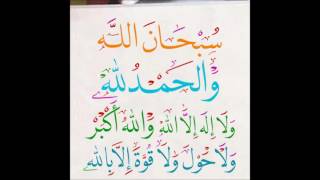 سُبْحَانَ اللَّهِ
وَالْحَمْدُ لِلَّهِ
وَلَا إِلَهَ إِلَّا اللَّهُ وَاللَّهُ أَكْبَرُ
وَلَا حَوْلَ وَلَا قُوَّةَ إِلَّا بِاللَّهِ